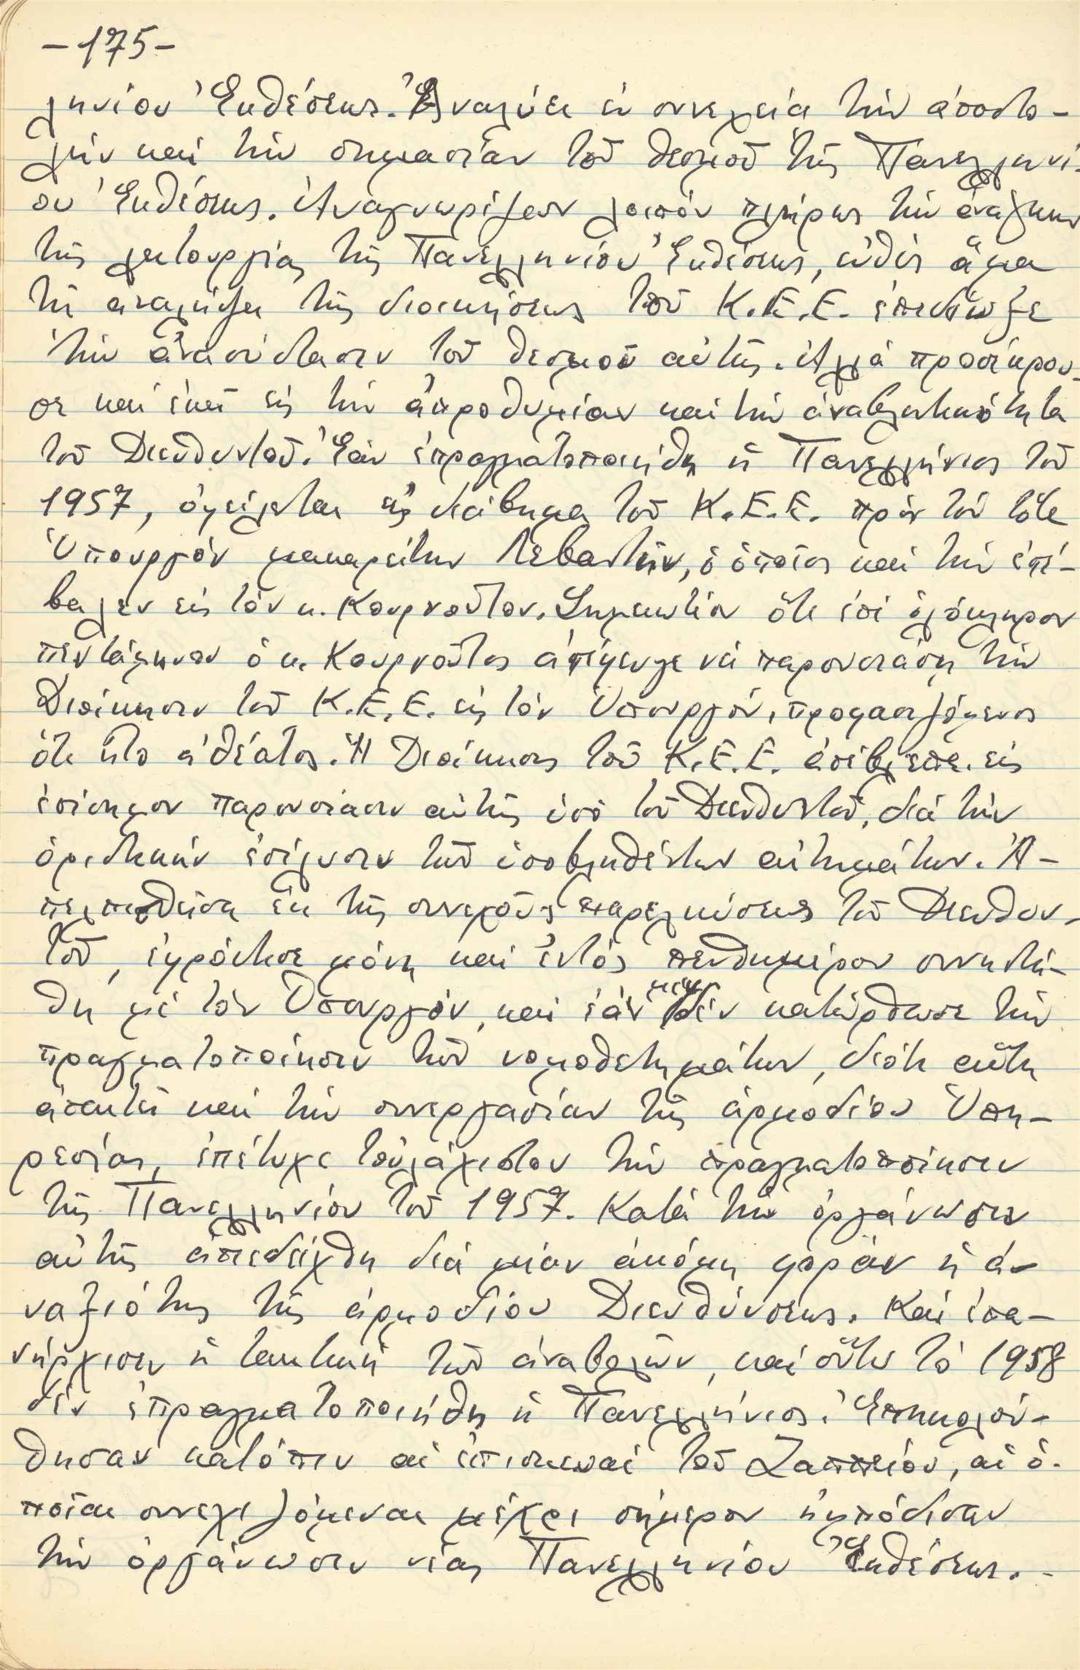 -175-
ληνίου Ἐκθέσεως. Ἀναλύει ἐν συνεχείᾳ τὴν ἀποστο-
λὴν καὶ τὴν σημασίαν τοῦ θεσμοῦ τῆς Πανελληνί-
ου Ἐκθέσεως. Ἀναγνωρίζεον λοιπόν πλήρως τὴν ἀνάγκην
τῆς λειτουργίας τῆς Πανελληνίου Ἐκθέσεως, εὐθὺς ἅμα
τῇ ἀναλήψει τῆς διοικήσεως τοῦ Κ.Ε.Ε. ἐπεδίωξε
τὴν ἀνασύστασιν τοῦ θεσμοῦ αὐτῆς. Ἀλλὰ προσέκρου-
σε καὶ ἐκεῖ εἰς τὴν ἀπροθυμίαν καὶ τὴν ἀναβλητικότητα
τοῦ Διευθυντοῦ. Ἐὰν ἐπραγματοποιήθη ἡ Πανελλήνιος τοῦ
1957, ὀφείλεται εἰς διάβημα τοῦ Κ.Ε.Ε. πρὸς τὸν τότε
Ὑπουργὸν μακαρίτην Λεβαντῆν, ὁ ὁποῖος καὶ τὴν ἐπέ-
βαλεν εἰς τὸν κ. Κουρνοῦτον. Σημειωτέον ὅτι ἐπὶ ὁλόκληρον
πεντάμηνον ὁ κ. Κουρνοῦτος ἀπέφευγε νὰ παρουσιάσῃ τὴν
Διοίκησιν τοῦ Κ.Ε.Ε. εἰς τὸν Ὑπουργόν, προφασιζόμενος
ὅτι ἦτο ἀθέατος. Ἡ Διοίκησις τοῦ Κ.Ε.Ε. ἀπέβλεπε εἰς
ἐπίσημον παρουσίασιν αὐτῆς ὑπὸ τοῦ Διευθυντοῦ, διὰ τὴν
ὁριστικὴν ἐπίλυσιν τῶν ὑποβληθέντων αἰτημάτων. Ἀ-
πελπισθεῖσα ἐκ τῆς συνεχοῦς παρελκύσεως τοῦ Διευθυν-
τοῦ, ἐφρόντισε μόνη καὶ ἐντὸς πενθημέρου συνηντή-
θη μὲ τὸν Ὑπουργόν, καὶ ἐὰν μὲν δὲν κατώρθωσε τὴν
πραγματοποίησιν τῶν νομοθετημάτων, διότι αὕτη
ἀπαιτεῖ καὶ τὴν συνεργασίαν τῆς ἁρμοδίου Ὑπη-
ρεσίας, ἐπέτυχε τοὐλάχιστον τὴν πραγματοποίησιν
τῆς Πανελληνίου τοῦ 1957. Κατὰ τὴν ὀργάνωσιν
αὐτῆς ἀπεδείχθη διὰ μίαν ἀκόμη φορὰν ἡ ἀ-
ναξιότης τῆς ἁρμοδίου Διευθύνσεως. Καὶ ἐπα-
νήρχισεν ἡ τακτικὴ τῶν ἀναβολῶν, καὶ οὕτω τὸ 1958
δὲν ἐπραγματοποιήθη ἡ Πανελλήνιος. Ἐπηκολού-
θησαν κατόπιν αἱ ἐπισκευαὶ τοῦ Ζαππείου, αἱ ὁ-
ποῖαι συνεχιζόμεναι μέχρι σήμερον ἠμπόδισαν
τὴν ὀργάνωσιν νέας Πανελληνίου Ἐκθέσεως.-